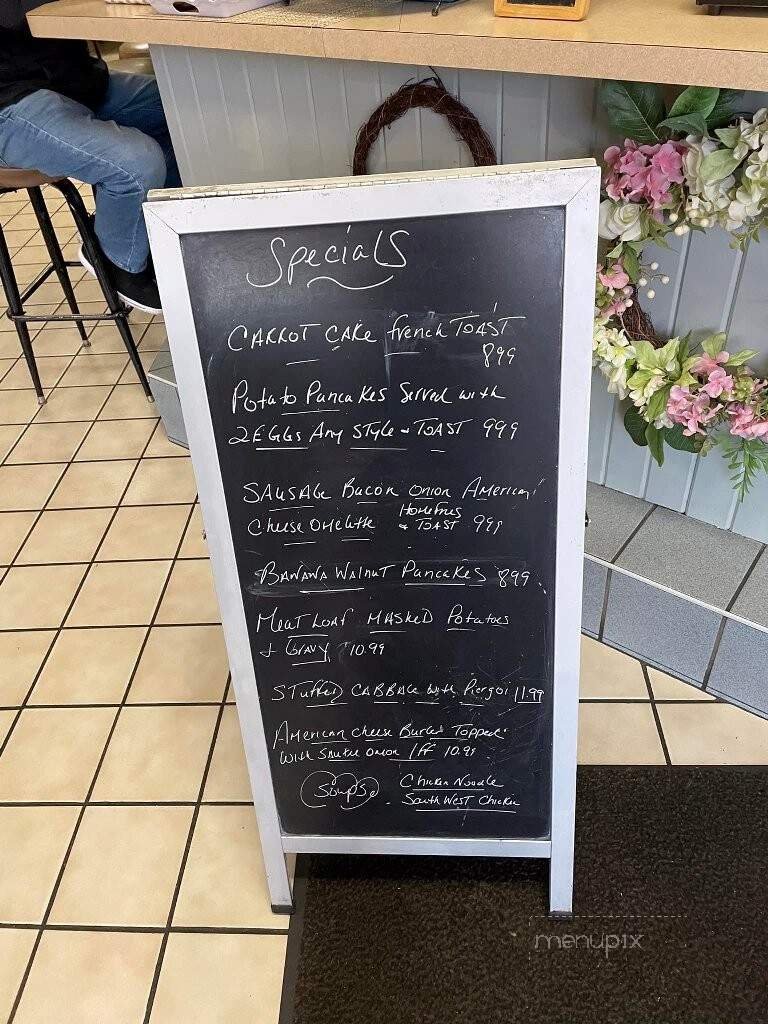 Specials
CARROT CAKE french TOAST
899
Potato Pancakes Served with
2 EGGS Any STYLE + TOAST 999
SAUSAGE Bacon Onion American
Homefries
Cheese Omelette & TOAST 999
BANANA WALNUT PANCAKES 899
Meat Loaf MASHED Potatoes
+ GRAVY 10.99
STuffed CABBAGE with Piergoi 11.99
American Cheese Burger Topped
With Sautee Onion 10.99
Soups Chicken Noodle
South West Chicken
menupix